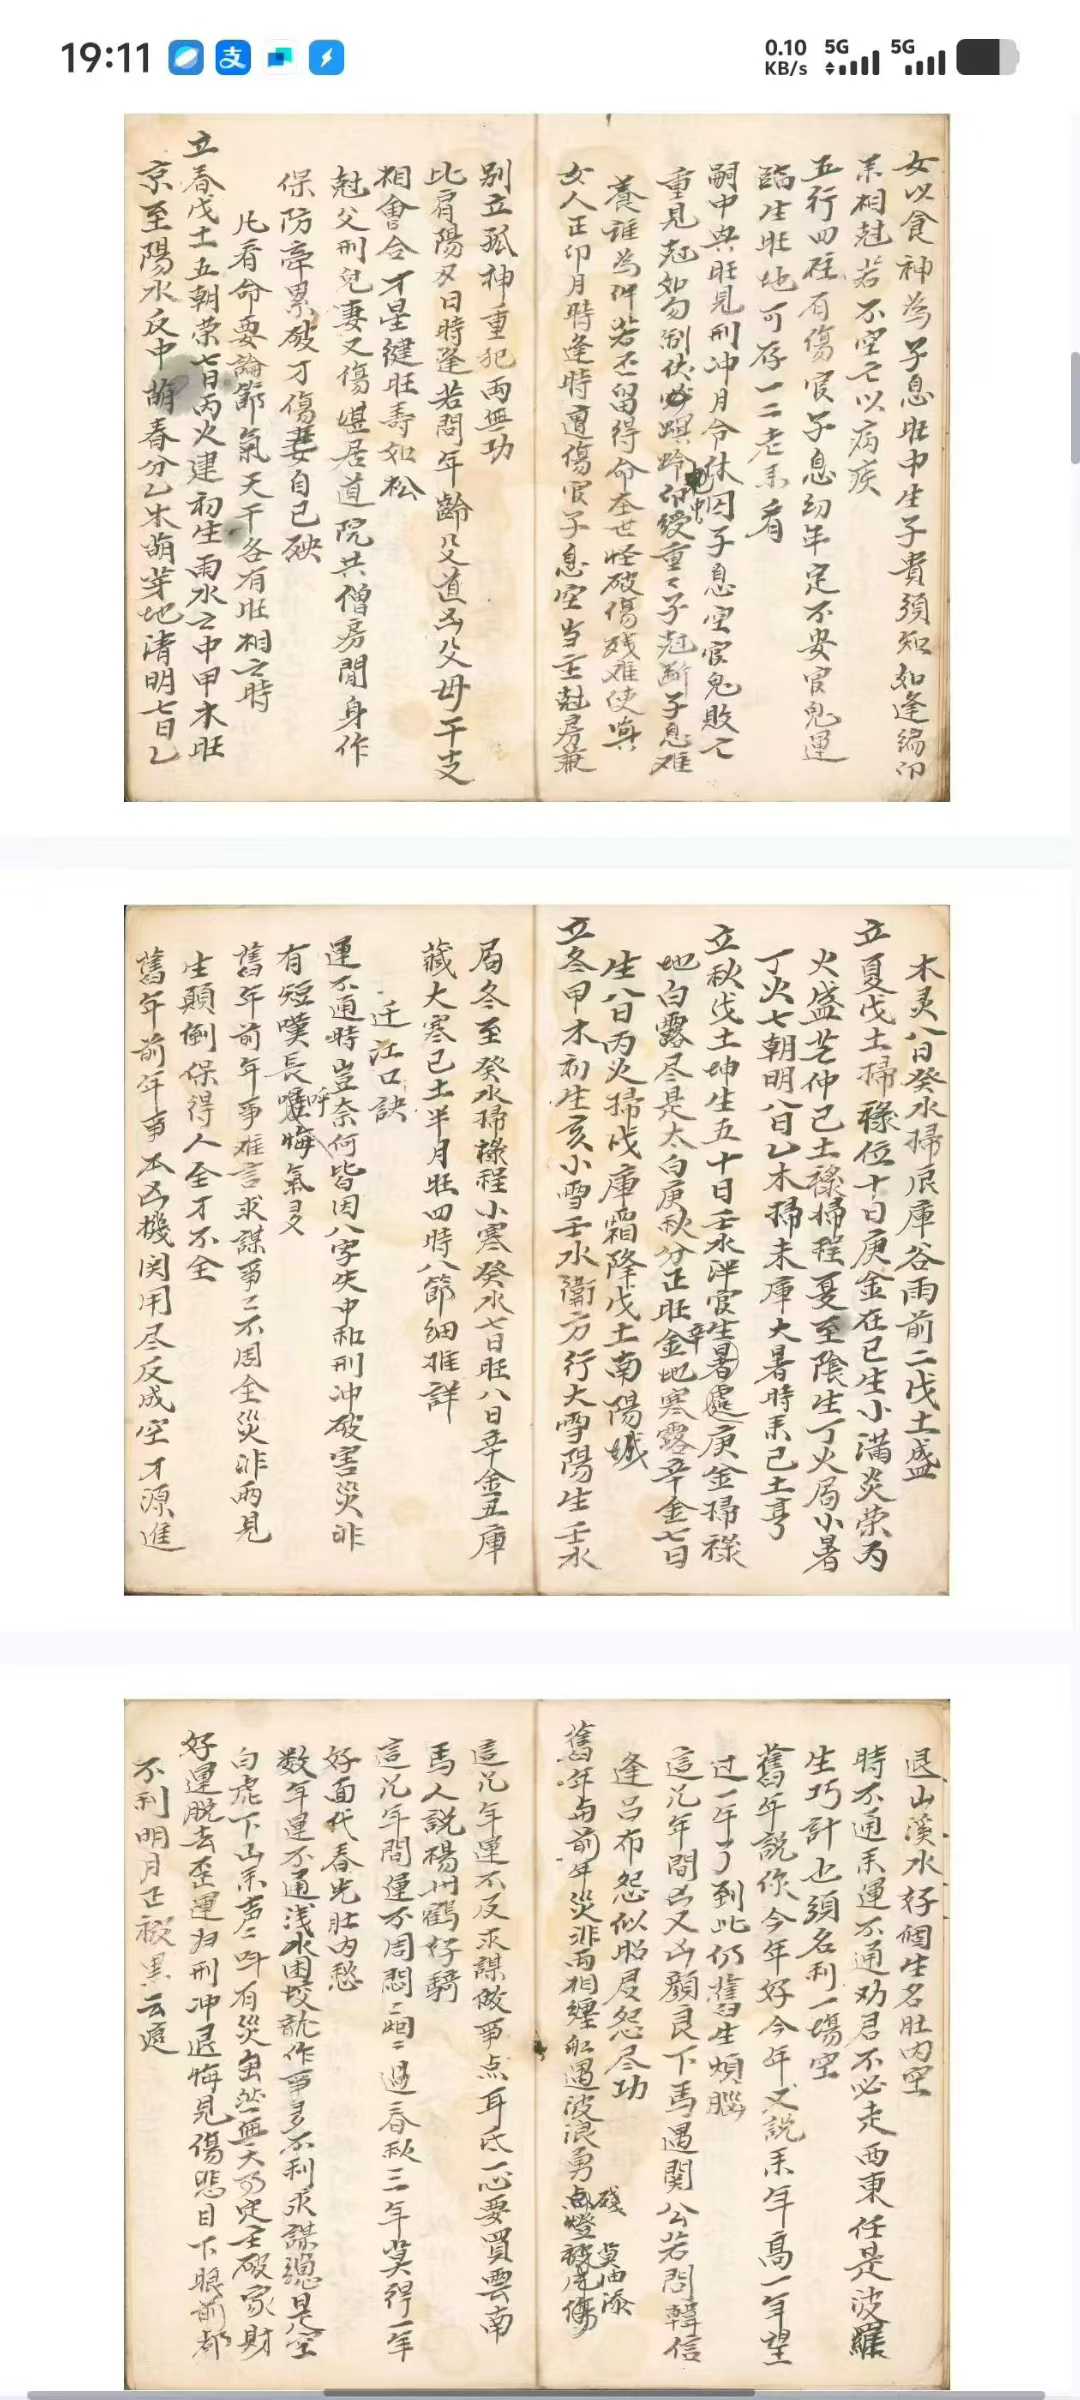 19:11
0.10 KB/s 5G 5G
女以食神為子息旺中生子貴須知如逢偏印
来相尅若不空亡以病疾
五行四柱有傷官子息幼年定不安官鬼運
臨生旺地可存一二老来看
嗣中興旺見刑冲月令休囚子息空官鬼敗亡
重見尅如勿制伏必螟蛉印綬重〻子尅断子息难
養誰為伴若还留得命在世怪破傷残难使興
女人正卯月時逢時遭傷官子息空当主尅房兼
别立孤神重犯両無功
比肩陽刃日時逢若問年齡及道凶父母干支
相會合才星健旺寿如松
尅父刑兒妻又傷堪居道院共僧房閒身作
保防牵累破才傷妻自己殃
凡看命要論節氣天干各有旺相之時
立春戊土五朝荣七日丙火建初生雨水之中甲木旺
京至陽水反中萌春分乙木萌芽地清明七日乙
木灵八日癸水掃辰庫谷雨前二戊土盛
立夏戊土掃祿位十日庚金在巳生小满炎荣丙
火盛芒仲己土祿掃程夏至陰生丁火局小暑
丁火七朝明八日乙木掃未庫大暑時来己土亨
立秋戊土坤生五十日壬水泮官生暑處庚金掃祿
地白露尽是太白庚秋分正旺辛金地寒露辛金七日
生八日丙火掃戊庫霜降戊土南陽城
立冬甲木初生亥小雪壬水衛方行大雪陽生壬水
局冬至癸水掃祿程小寒癸水七日旺八日辛金丑庫
藏大寒己土半月旺四時八節細推詳
迁江口訣
運不通時豈奈何皆因八字失中和刑冲破害災非
有短嘆長呼悔氣多
舊年前年事难言求謀事〻不周全災非両見
生顛倒保得人全才不全
舊年前年事不凶機関用尽反成空才源進
退山溪水好個生名肚内空
時不通来運不通劝君不必走西東任是波羅
生巧計也須名利一塲空
舊年説你今年好今年又説来年高一年望
过一年了到此仍舊生煩腦
這几年間吉又凶顏良下馬遇関公若問韓信
逢吕布怨似昭君怨尽功
舊年与前年災非両相纏舡遇波浪勇点燈
這几年運不反求謀做事点耳氐一心要買雲南
馬人説楊州鶴好騎
這几年間運不周悶〻㛿〻過春秋三年莫得一年
好面代春光肚内愁
数年運不通浅水困蛟龍作事多不利求謀總是空
白虎下山来声〻叫有災虽然無大乃定主破家財
好運脱去歪運归刑冲退悔見傷悲目下眼前都
不利明月正被黑云遮